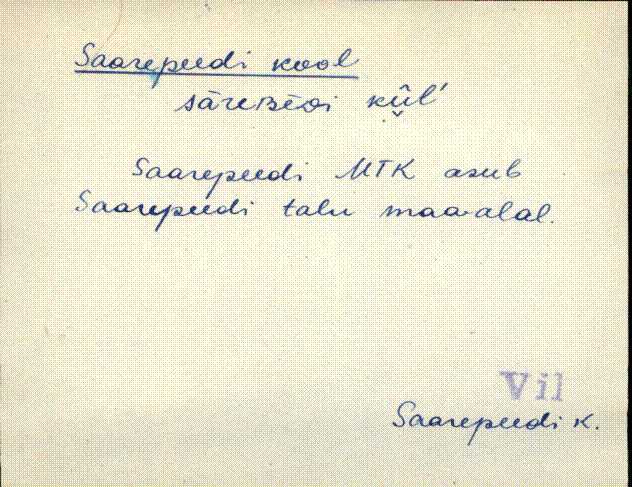 Saarepeedi kool
särepeedi kül'
Saarepeedi MTK asub
Saarepeedi talu maa-alal.
Vil
Saarepeedi k.